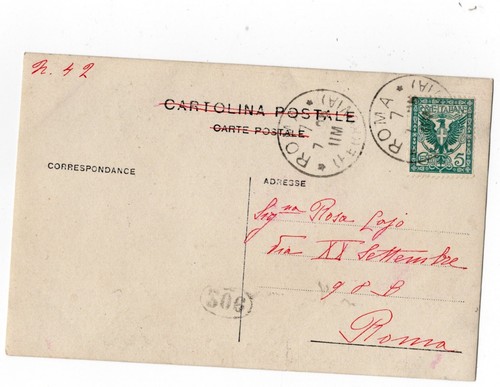 n. 42
CARTOLINA POSTALE
CARTE POSTALE
CORRESPONDANCE
ADRESSE
ROMA
(FERROVIA)
ROMA
POSTE ITALIANE
C. 5
Sig.na Rosa Lajo
Via XX Settembre
98 B
Roma
506